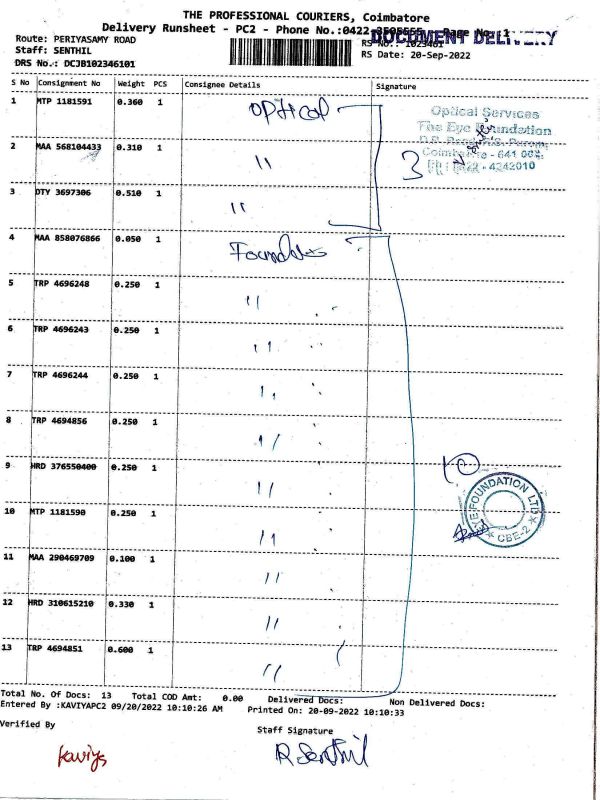 THE PROFESSIONAL COURIERS, Coimbatore
Delivery Runsheet - PC2 - Phone No.:0422 Page No.:1
DOCUMENT DELIVERY
Route: PERIYASAMY ROAD
RS No.: 1023461
Staff: SENTHIL
RS Date: 20-Sep-2022
DRS No.: DCJB102346101
S No Consignment No Weight PCS Consignee Details Signature
1 MTP 1181591 0.360 1 optical
Optical Services
The Eye Foundation
2 MAA 568104433 0.310 1 "
3
Coimbatore - 641 002
0422 - 4242010
3 DTY 3697306 0.510 1 "
4 MAA 858076866 0.050 1 Foundation
5 TRP 4696248 0.250 1 "
6 TRP 4696243 0.250 1 "
7 TRP 4696244 0.250 1 "
8 TRP 4694856 0.250 1 "
9 HRD 376550400 0.250 1 "
10
EYE FOUNDATION LTD
* CBE-2 *
10 MTP 1181590 0.250 1 "
11 MAA 290469709 0.100 1 "
12 HRD 310615210 0.330 1 "
13 TRP 4694851 0.600 1 "
Total No. Of Docs: 13 Total COD Amt: 0.00 Delivered Docs: Non Delivered Docs:
Entered By :KAVIYAPC2 09/20/2022 10:10:26 AM Printed On: 20-09-2022 10:10:33
Verified By
Staff Signature
kaviya
R Senthil